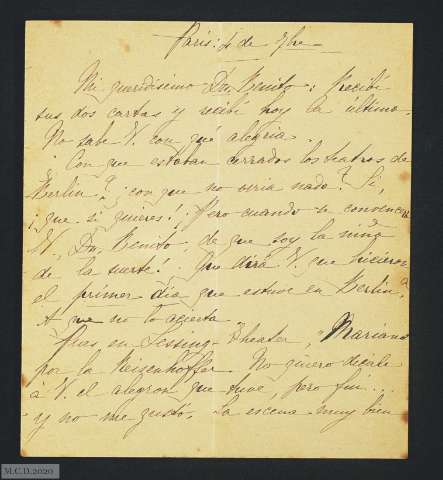 Paris: 4 de 7bre
Mi queridísimo Dn. Benito: Recibí
sus dos cartas y recibí hoy la última.
No sabe V. con qué alegría.
¿Con que estaban cerrados los teatros de
Berlin? ¿con que no oiria nada? Si,
¡que si quieres! ¡Pero cuando se convencerá
V., Dn. Benito, de que soy la niña
de la suerte! Que dirá V. que hicieron
el primer dia que estuve en Berlin?
A que no lo acierta
Pues en Lessing-Theater, "Mariana"
por la Reizenhoffer. No quiero decirle
á V. el alegron que tuve, pero fui...
y no me gustó. La escena muy bien
M.C.D. 2020